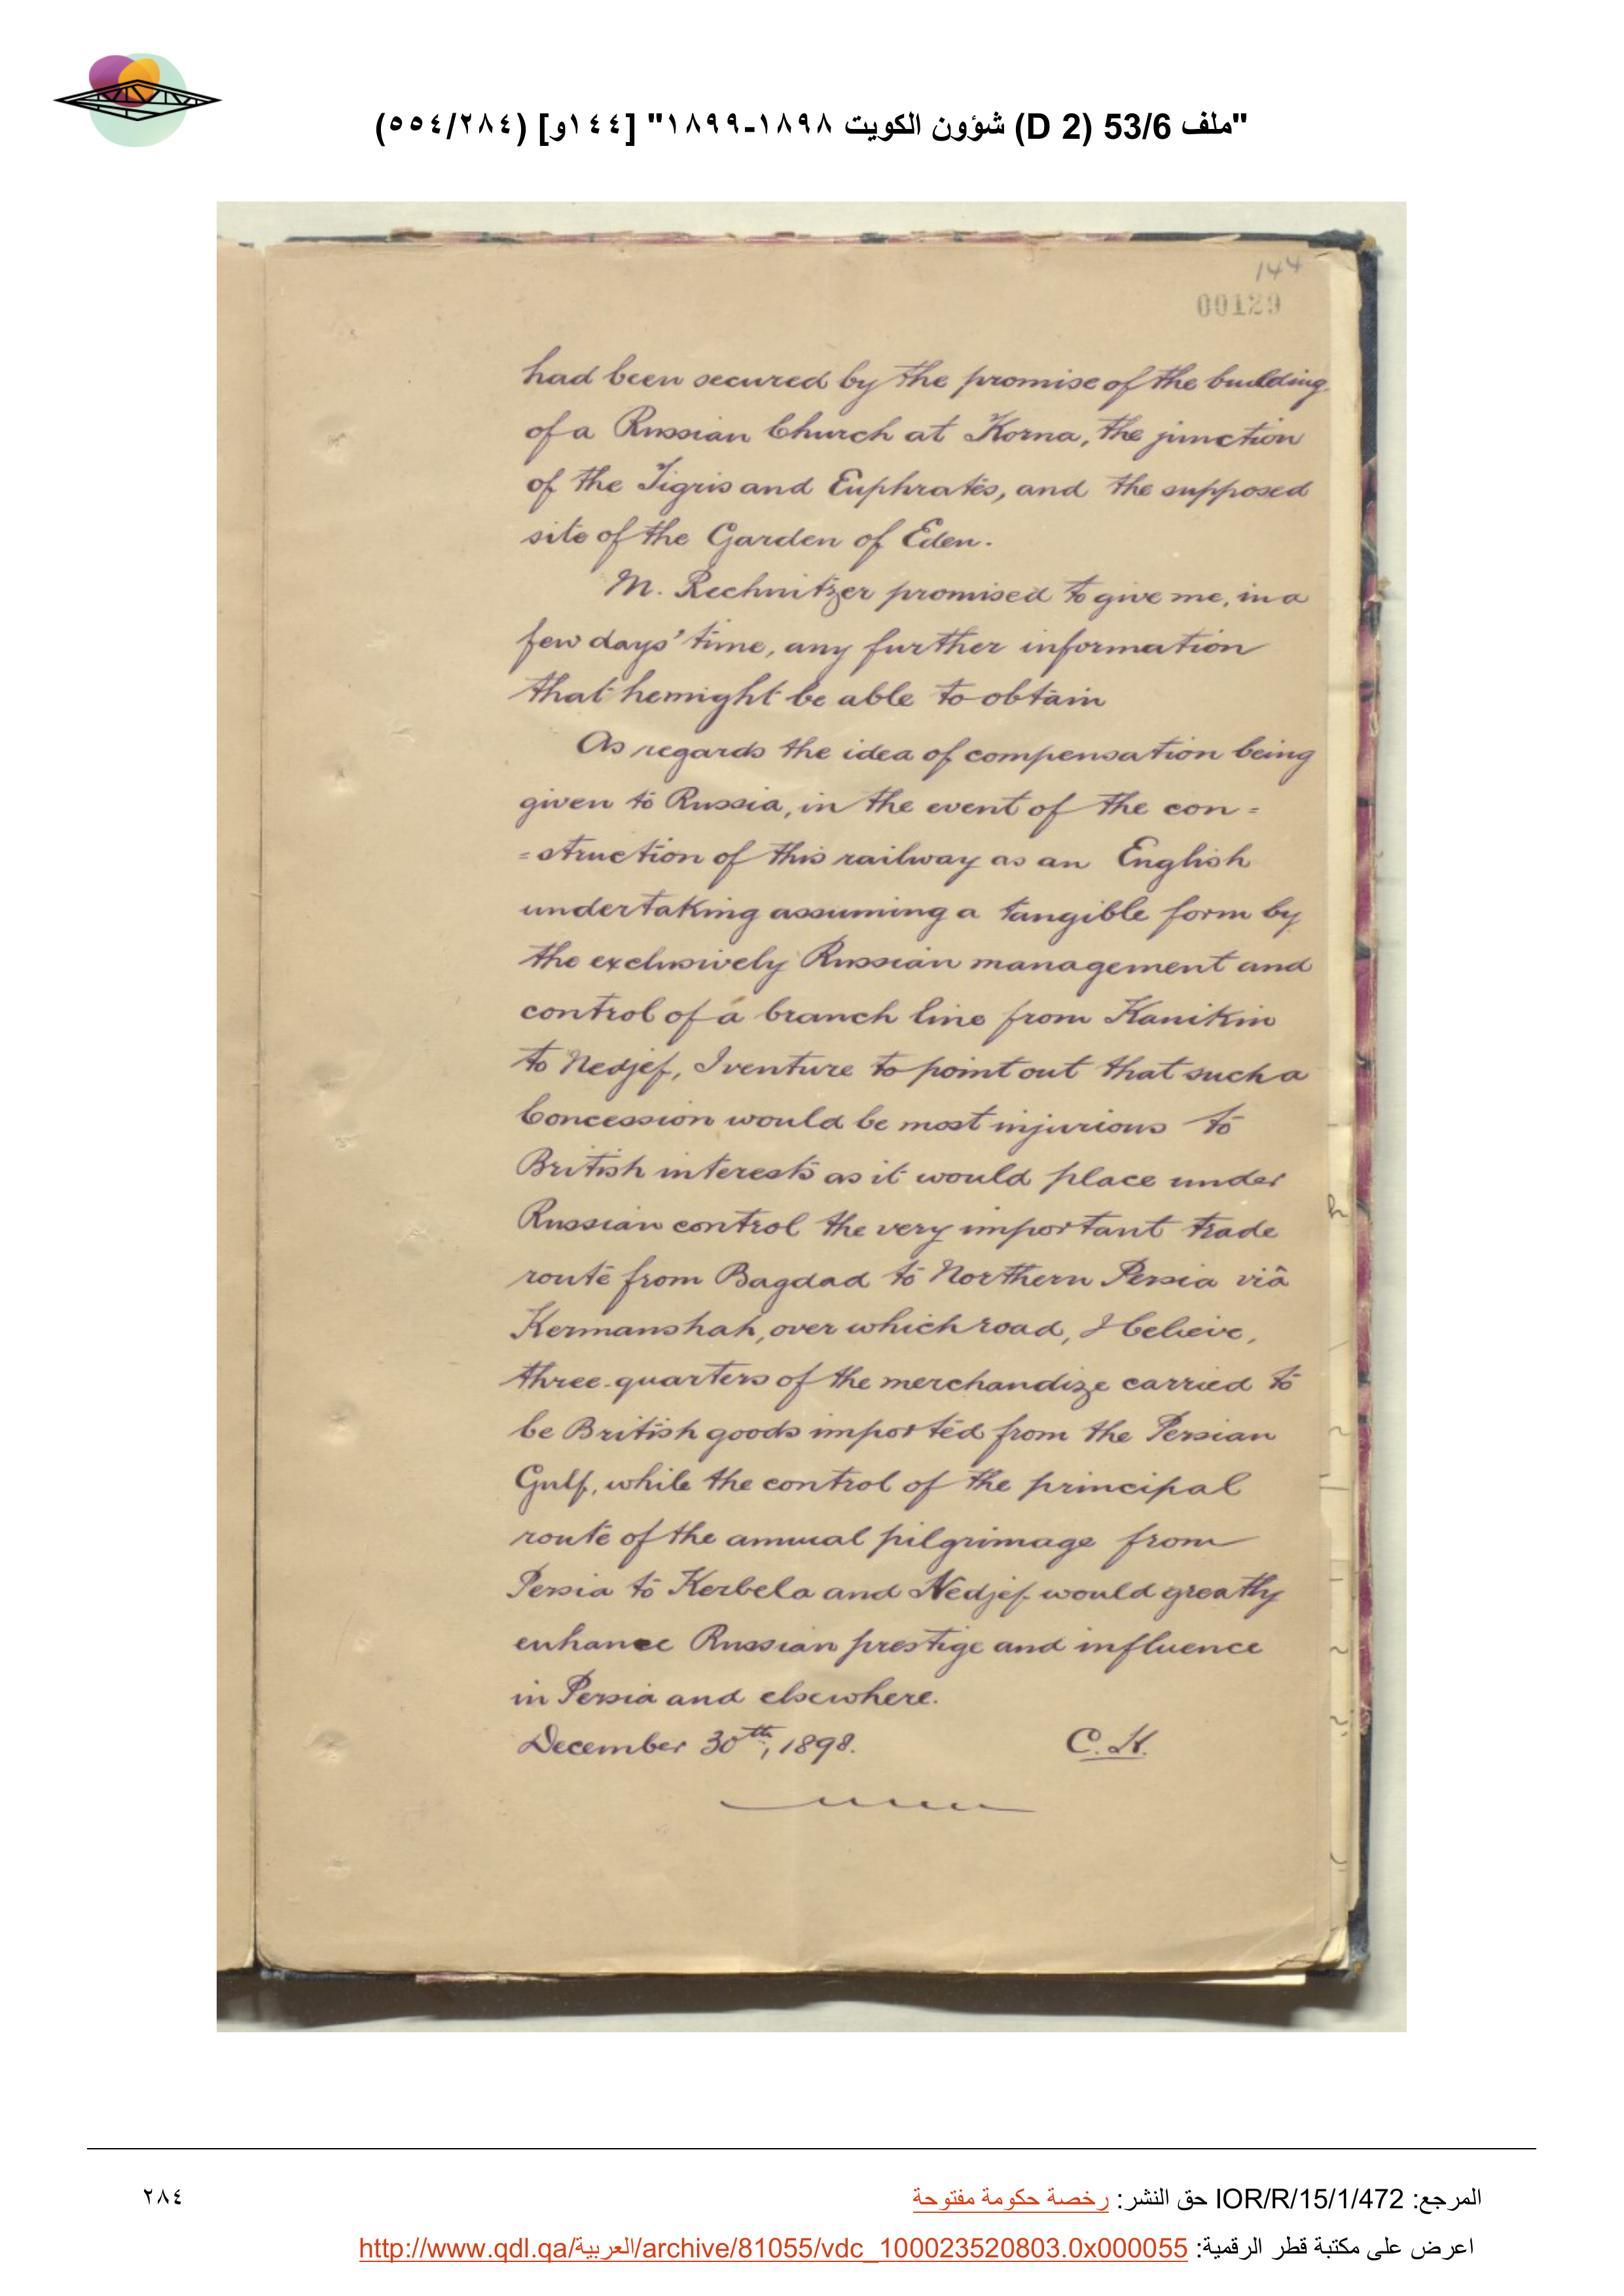 "ملف 53/6 (D 2) شؤون الكويت ١٨٩٨-١٨٩٩" [١٤٤و] (٢٨٤/٥٥٤)
144
00129
had been secured by the promise of the building
of a Russian Church at Korna, the junction
of the Tigris and Euphrates, and the supposed
site of the Garden of Eden.
M. Rechnitzer promised to give me, in a
few days' time, any further information
that he might be able to obtain
As regards the idea of compensation being
given to Russia, in the event of the con=
=struction of this railway as an English
undertaking assuming a tangible form by
the exclusively Russian management and
control of a branch line from Kanikin
to Nedjef, I venture to point out that such a
Concession would be most injurious to
British interests as it would place under
Russian control the very important trade
route from Bagdad to Northern Persia viâ
Kermanshah, over which road, I believe,
three-quarters of the merchandize carried to
be British goods imported from the Persian
Gulf, while the control of the principal
route of the annual pilgrimage from
Persia to Kerbela and Nedjef would greatly
enhance Russian prestige and influence
in Persia and elsewhere.
December 30th, 1898. C.H.
المرجع: IOR/R/15/1/472 حق النشر: رخصة حكومة مفتوحة
٢٨٤
اعرض على مكتبة قطر الرقمية: http://www.qdl.qa/العربية/archive/81055/vdc_100023520803.0x000055